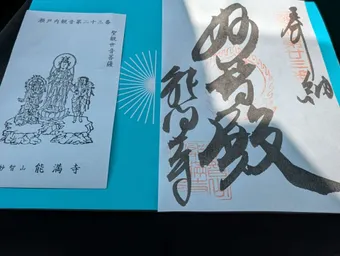 瀬戸内観音第二十三番
聖観世音菩薩
妙智山 能満寺
奉納
妙智殿
能満寺